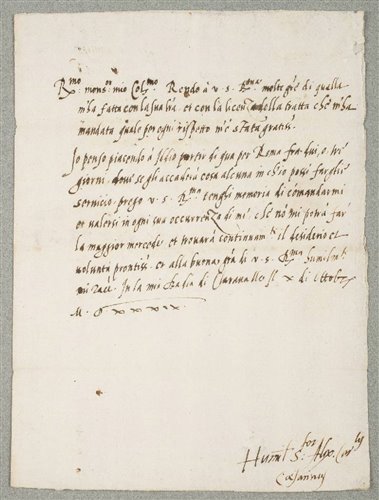 R.mo mons.or mio Col.mo Rendo à v. s. R.ma molte gr̃e di quella
m'ha fatta con la sua l̃ra. et con la licenza della tratta che m'ha
mandata quale per ogni rispetto m'è stata gratiss.
Io penso piacendo à Iddio partir di qua per Roma fra dui, o, tre
giorni. doue se gli accadirà cosa alcuna in ch'io possi fargli
seruicio. prego v. s. R.ma tenghi memoria di comandarmi
et valersi in ogni sua occurrenza di me, che nō mi potrà far
la maggior mercede. et trouarà continuam.te il desiderio et
volunta prontiss. et alla buona gr̃a di v. s. R.ma humilm.te
mi racc. In la mia Badia di Chiaraualle il x di Ottob.
M. D xxxvix
Humil S.tor